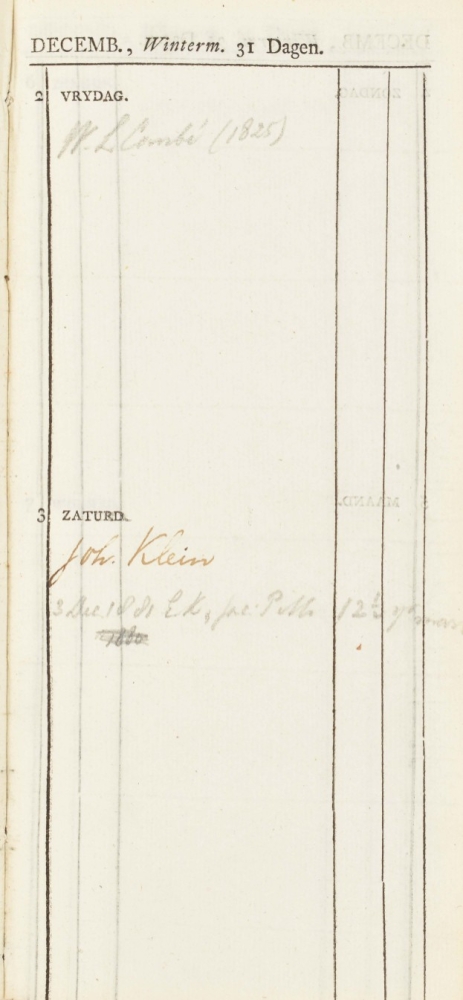 DECEMB., Winterm. 31 Dagen.
2 VRYDAG.
W. L Combé (1825)
3 ZATURD.
Joh. Klein
3 Dec. 1881 E.K, Jac. 12½